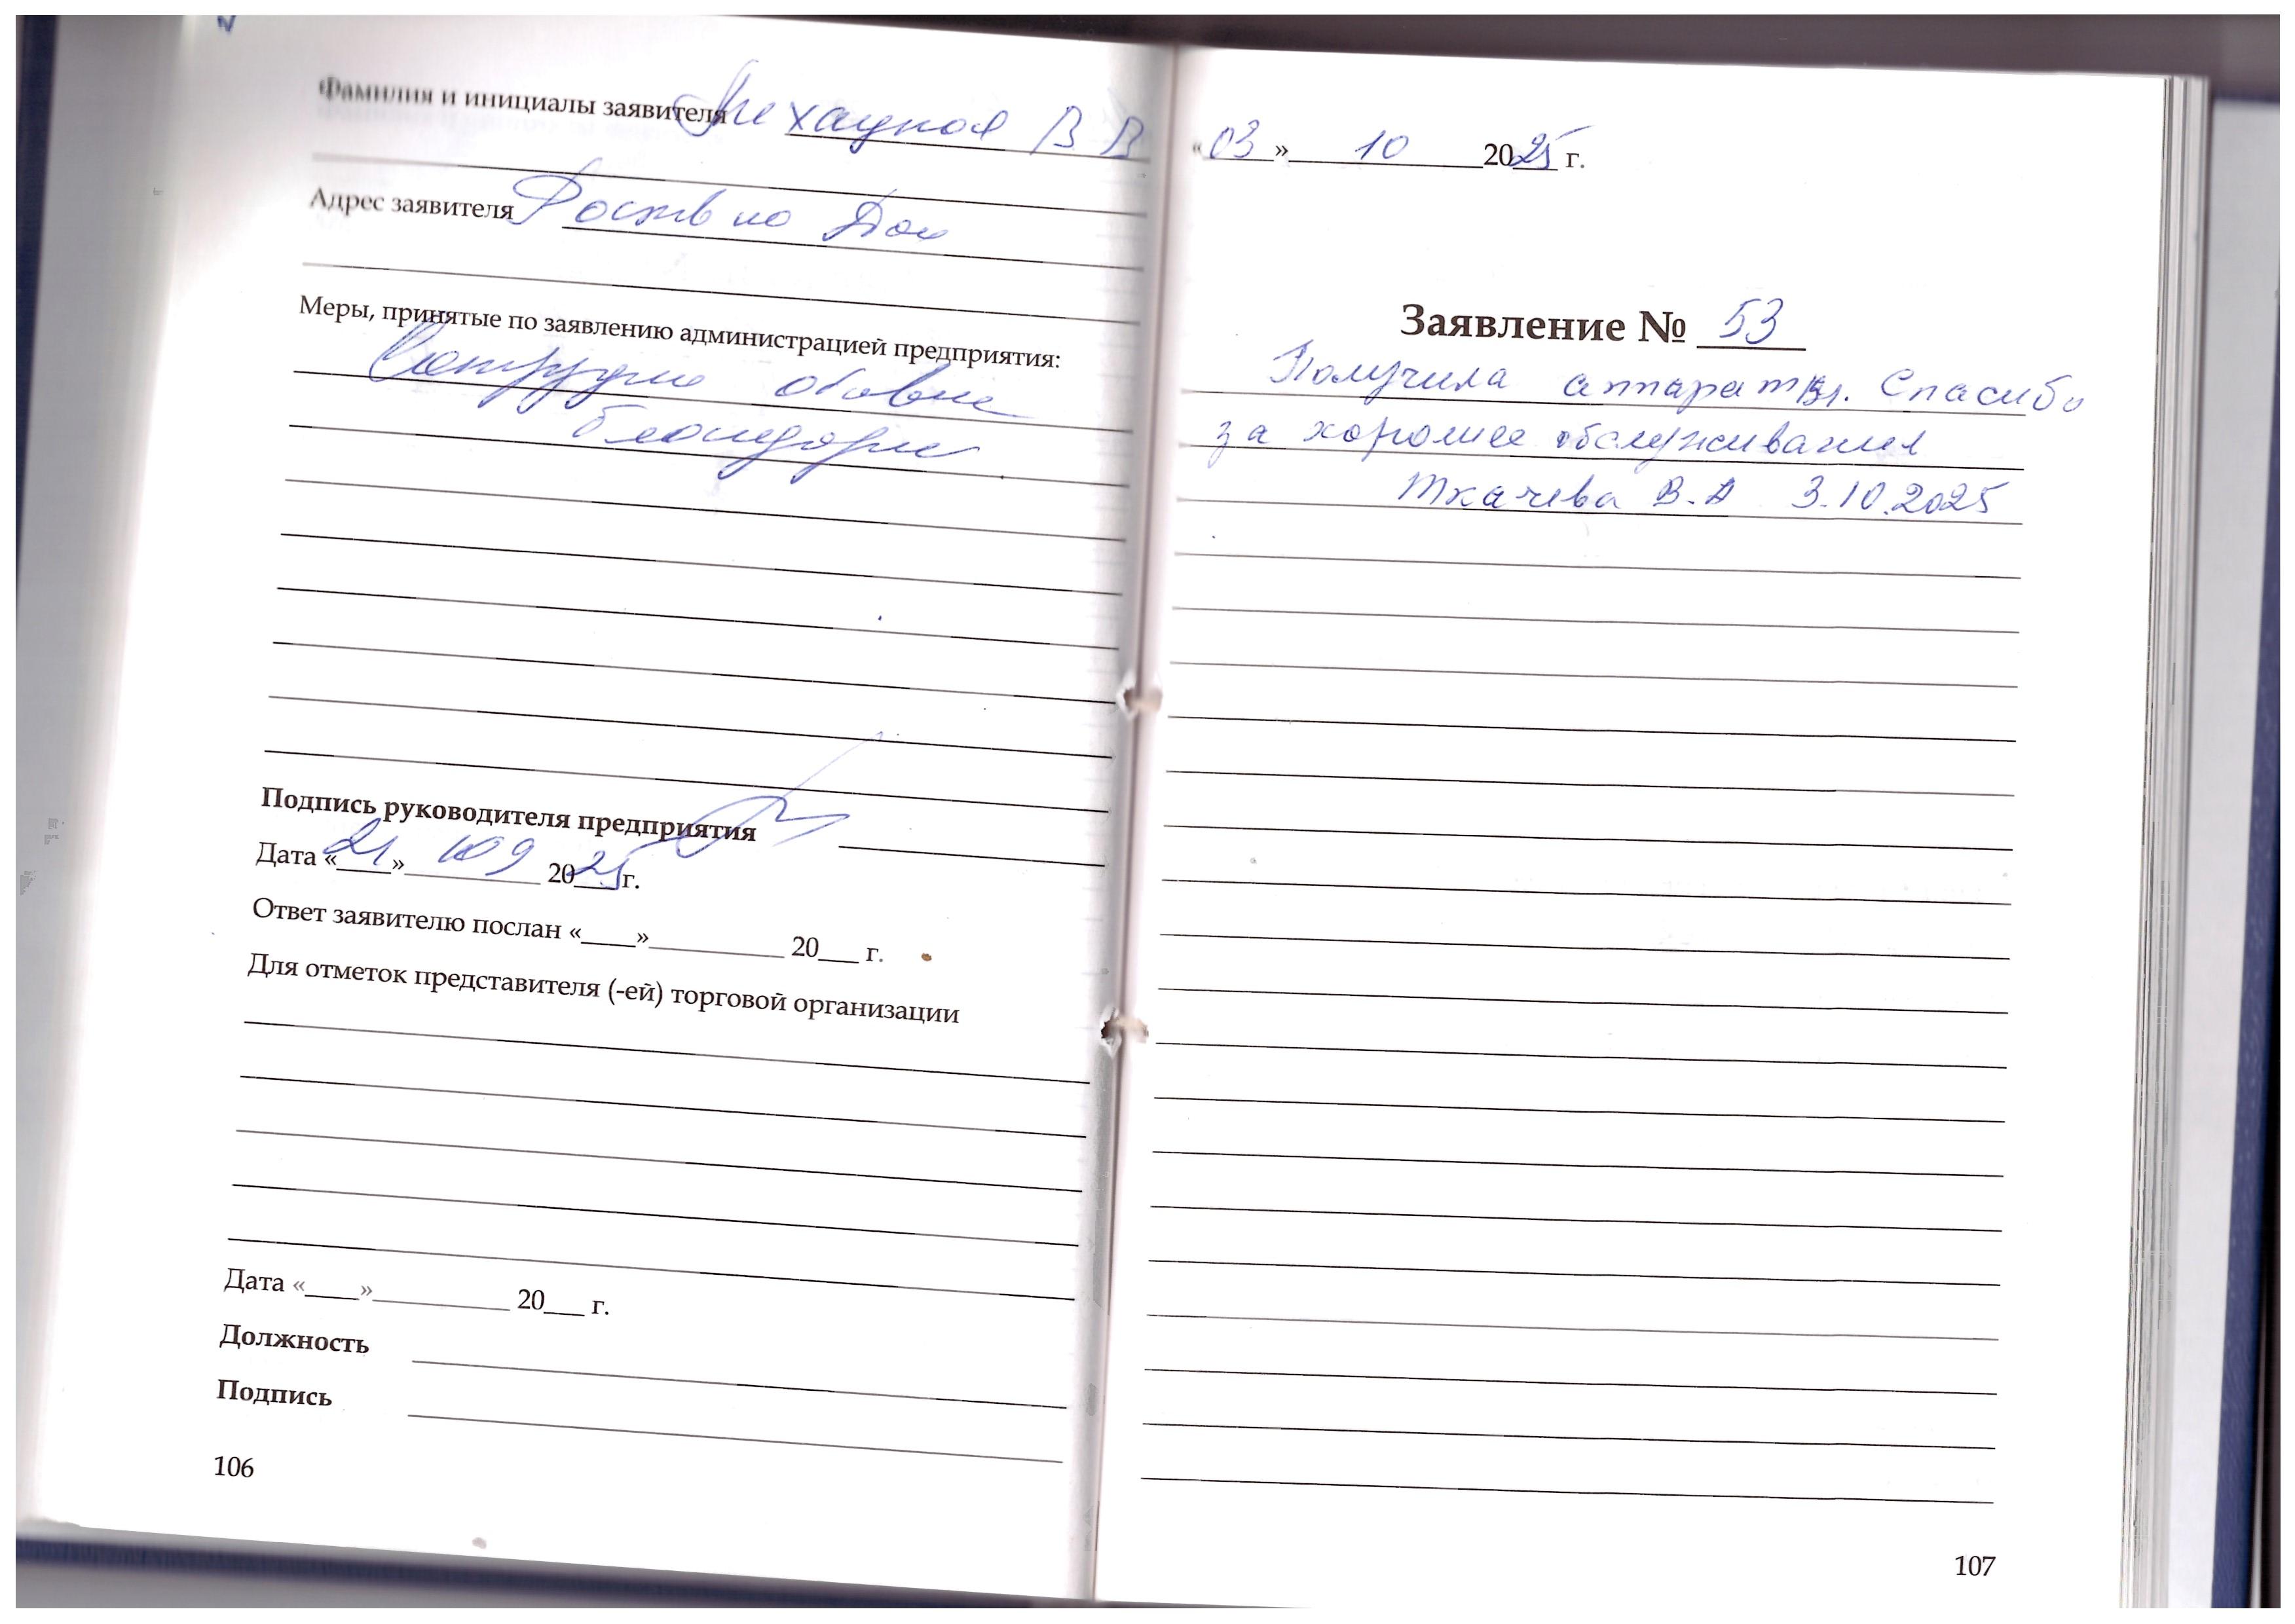 Фамилия и инициалы заявителя В В
Адрес заявителя Рост на Дон
Меры, принятые по заявлению администрацией предприятия:
Подпись руководителя предприятия
Дата «21» 09 2025 г.
Ответ заявителю послан «____»__________ 20___ г.
Для отметок представителя (-ей) торговой организации
Дата «____»__________ 20___ г.
Должность
Подпись
106
«03» 10 2025 г.
Заявление № 53
Получила аппарат. Спасибо
за хорошее обслуживания
Ткачева В.А 3.10.2025
107